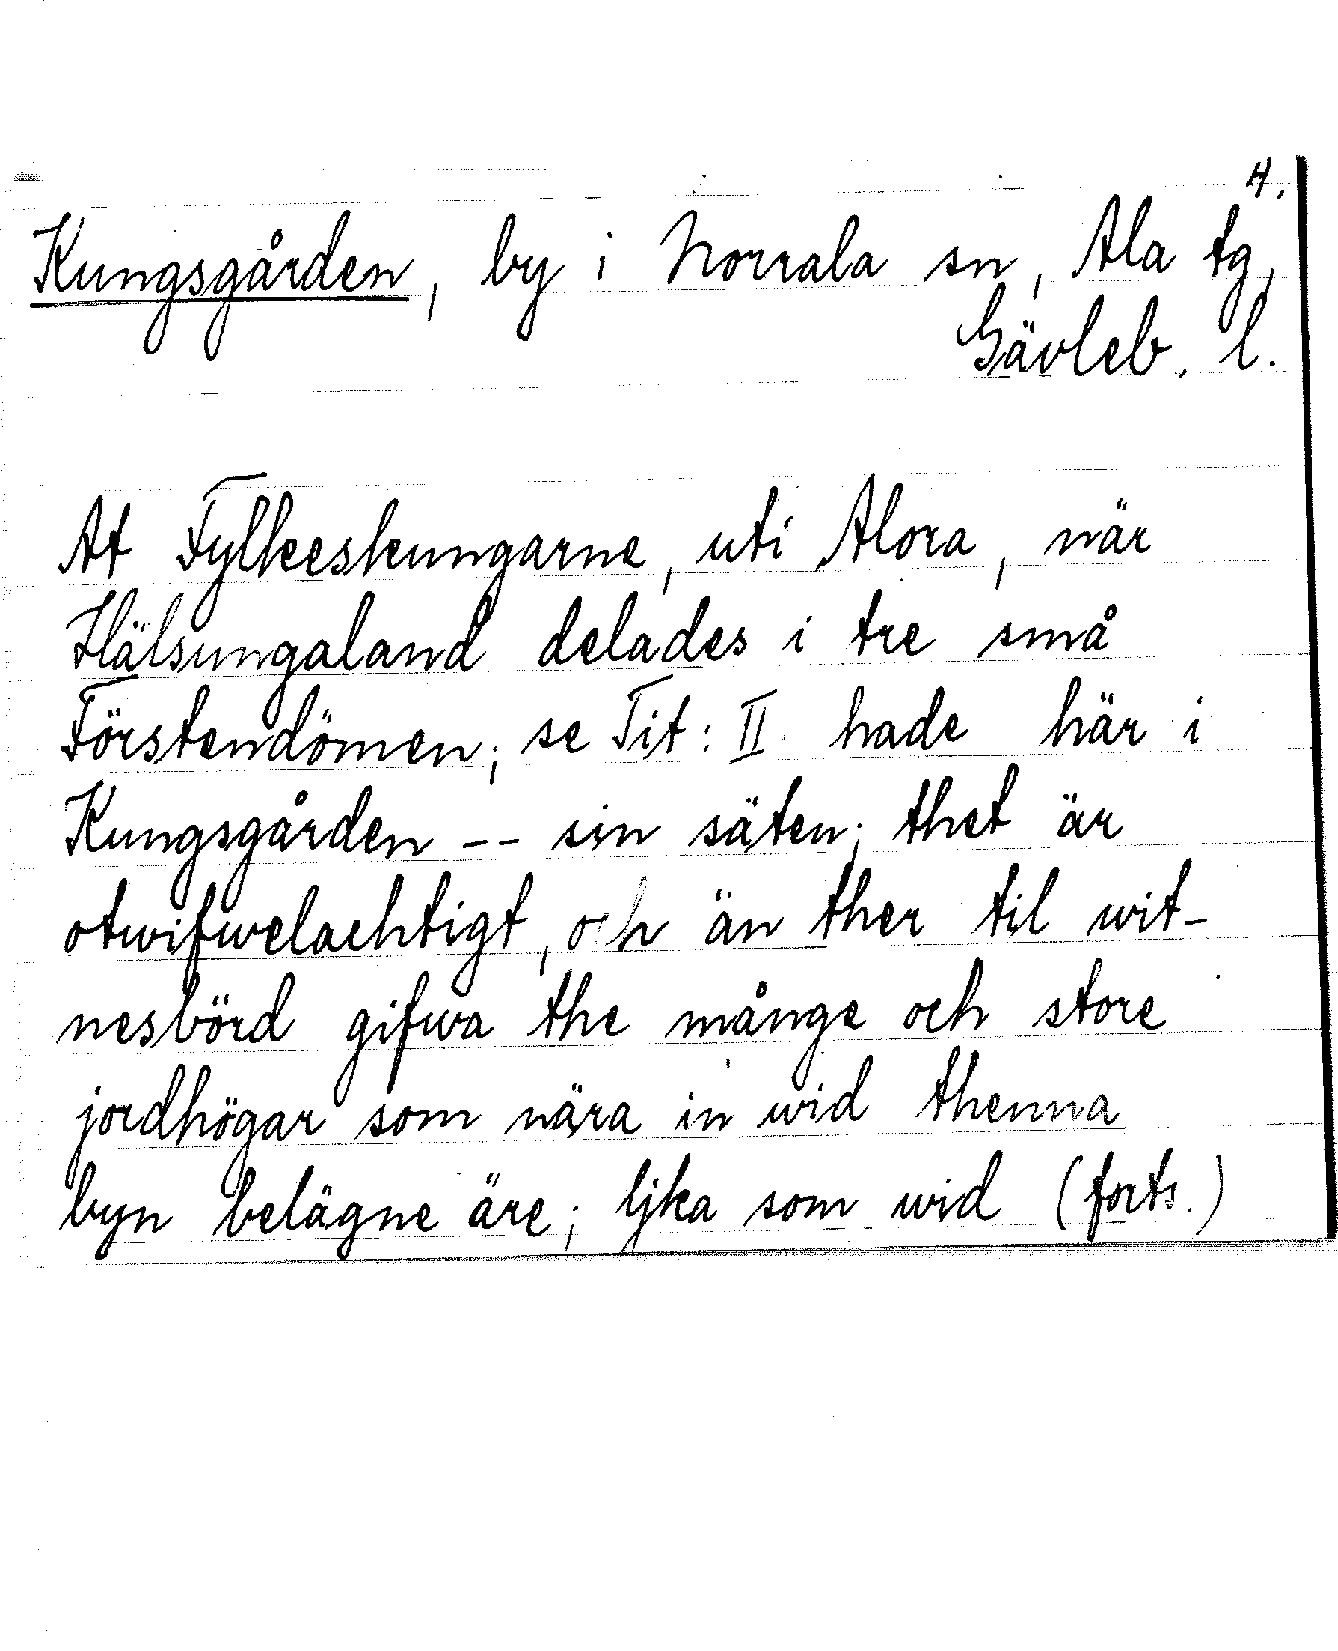 4.
Kungsgården, by i Norrala sn, Ala tg,
Gävleb. l.
At Fylkeskungarne, uti Alora, när
Hälsungaland delades i tre små
Förstendömen; se Tit: II hade här i
Kungsgården -- sin säten; thet är
otwifwelachtigt, och än ther til wit-
nesbörd gifwa the månge och store
jordhögar som nära in wid thenna
byn belägne äre; ljka som wid (forts.)